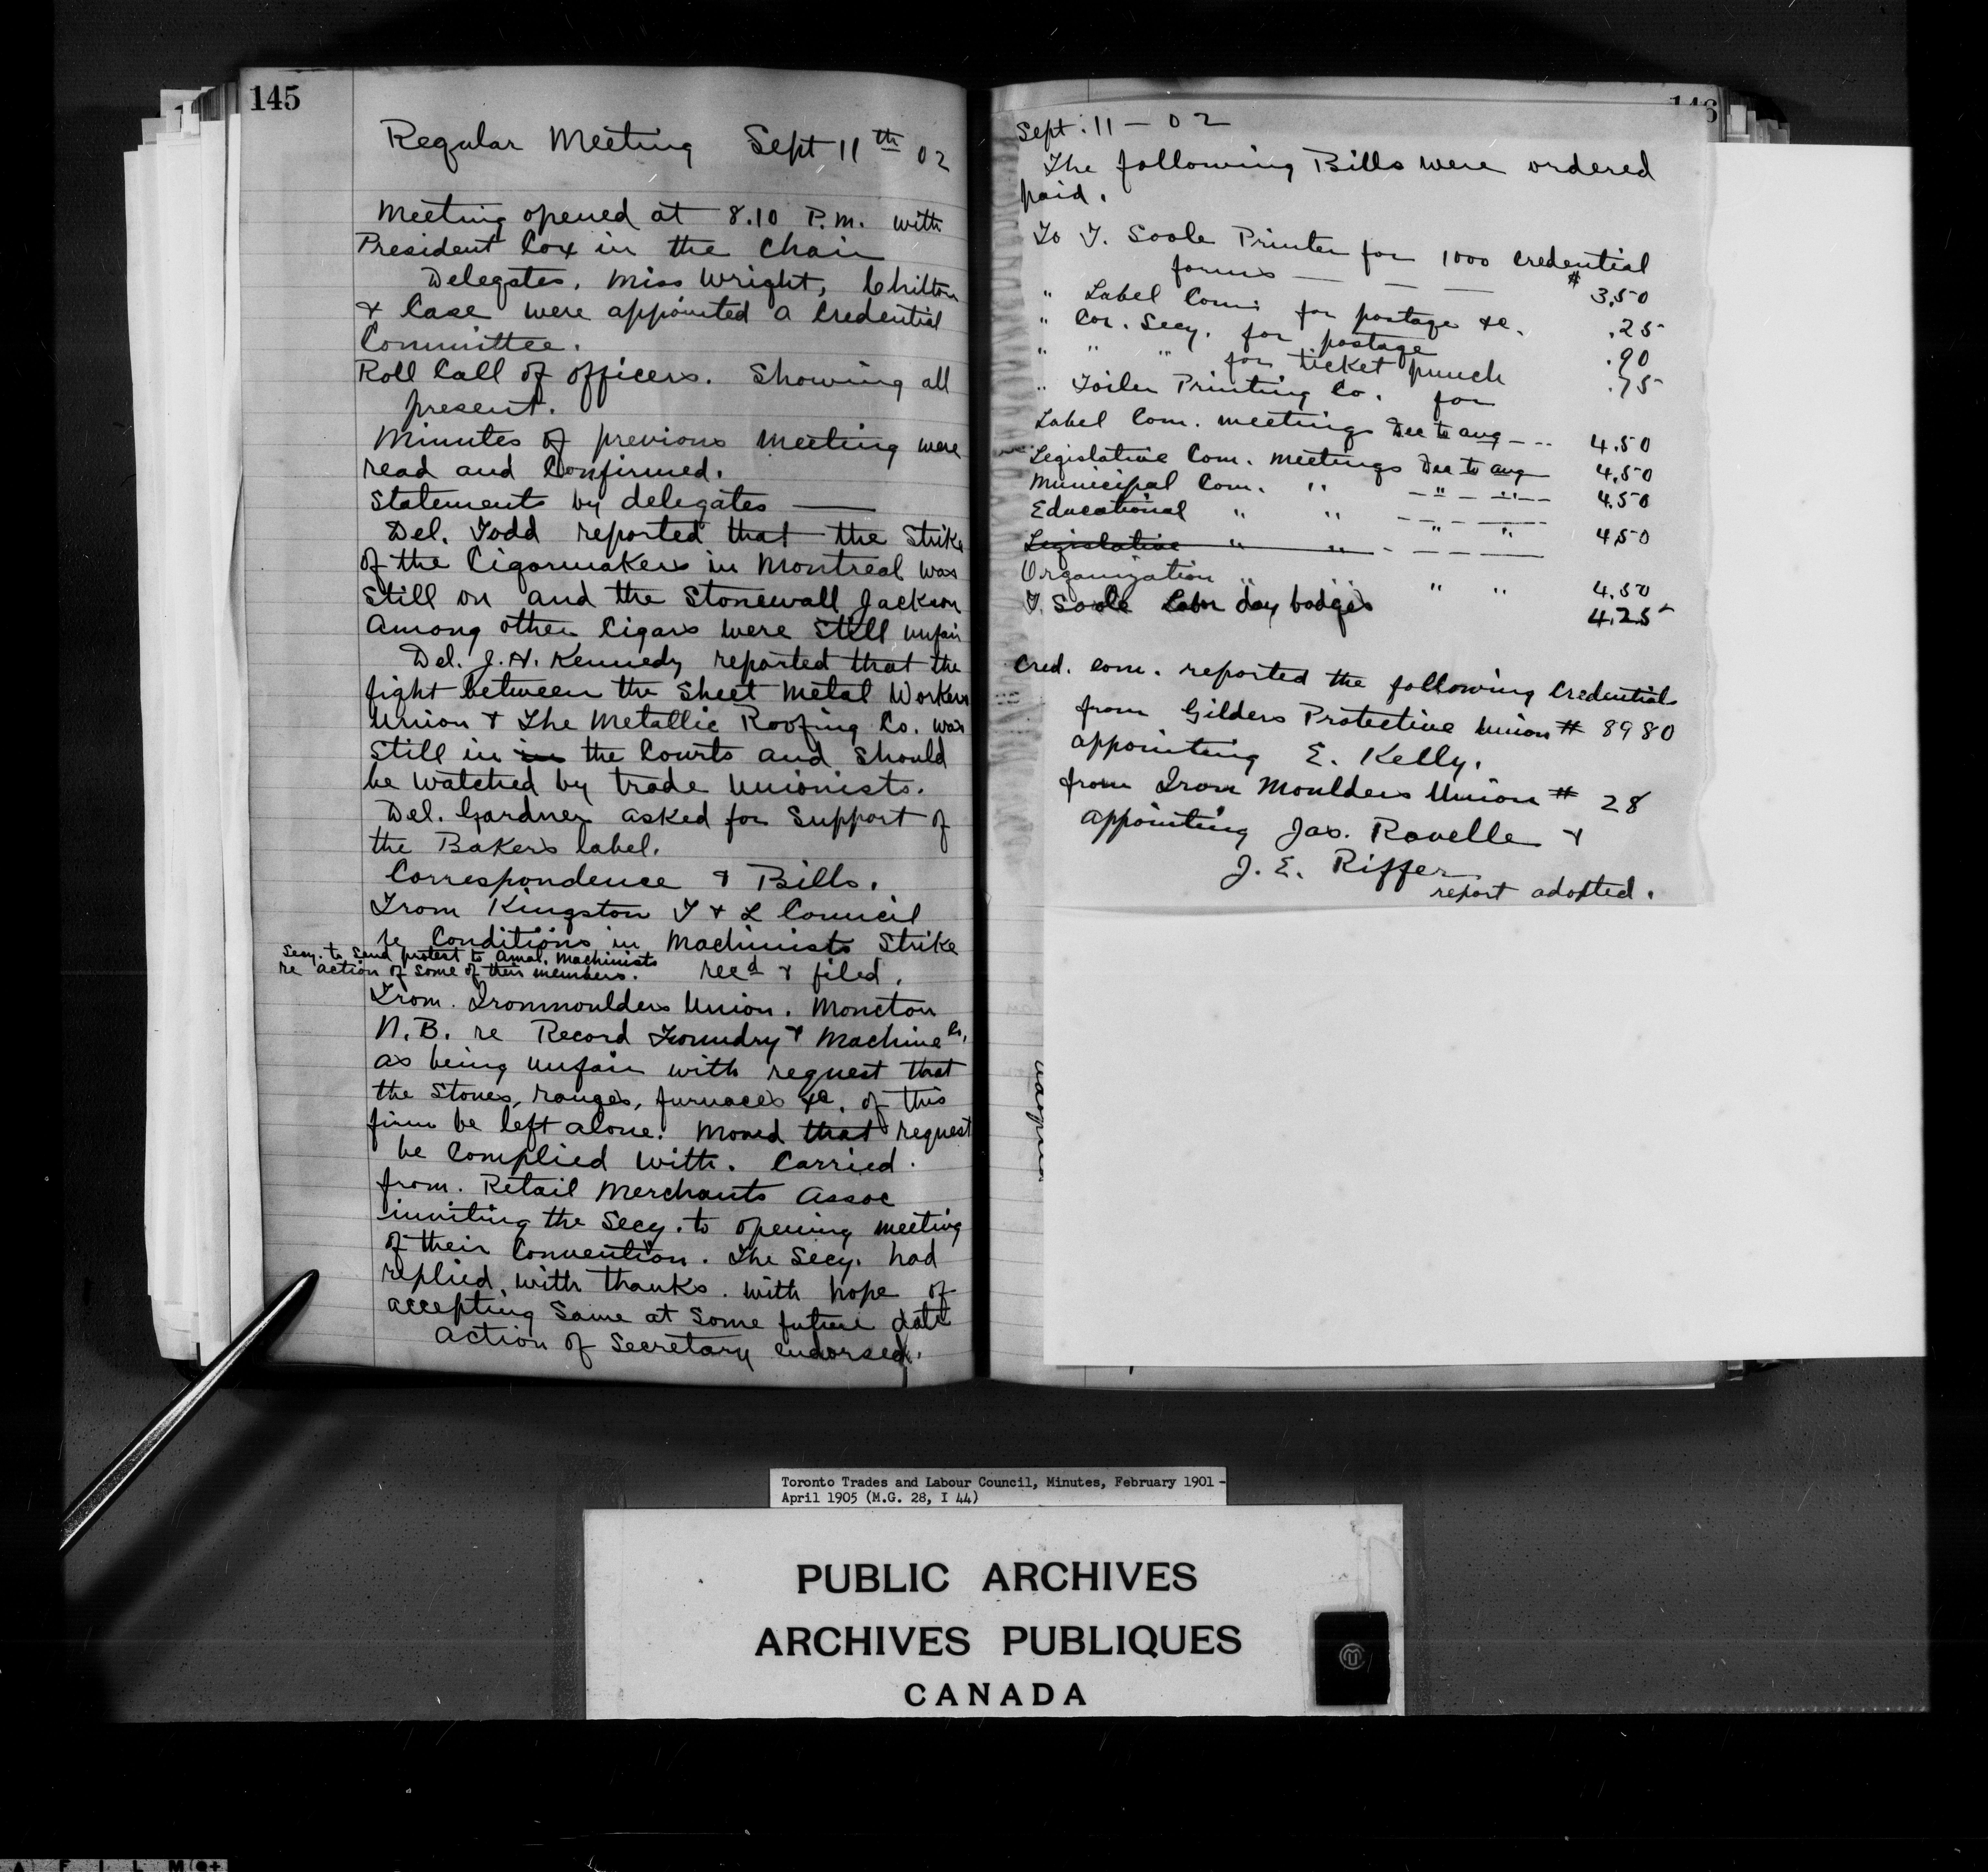 145
Regular Meeting Sept 11th 02
Meeting opened at 8.10 P.M. with
President Cox in the Chair
Delegates, Miss Wright, Chilton
& Case were appointed a Credential
Committee.
Roll Call of officers. Showing all
present.
Minutes of previous meeting were
read and Confirmed.
Statements by delegates —
Del. Todd reported that the Strike
of the Cigarmakers in Montreal was
Still on and the Stonewall Jackson
Among other Cigars were Still unfair
Del. J.H. Kennedy reported that the
fight between the Sheet Metal Workers
Union & The Metallic Roofing Co. was
Still in in the Courts and Should
be watched by trade Unionists.
Del. Gardner asked for Support of
the Bakers label.
Correspondence & Bills.
From Kingston T & L Council
re Conditions in Machinists Strike
Secy. to Send protest to Amal. Machinists
re action of Some of their members. recd & filed.
From. Ironmoulders Union. Moncton
N.B. re Record Foundry & Machine Co.
as being unfair with request that
the Stoves, ranges, furnaces &c. of this
firm be left alone. Moved that request
be Complied with. Carried.
from. Retail Merchants Assoc
inviting the Secy. to opening meeting
of their Convention. The Secy. had
replied with thanks. with hope of
accepting Same at Some future date
action of Secretary endorsed.
146
Sept. 11 - 02
The following Bills were ordered
paid.
To T. Soole Printer for 1000 Credential
forms — — — $ 3.50
" Label Com: for postage &c. .25
" Cor. Secy. for postage .90
" " " for ticket punch .75
" Toiler Printing Co. for
Label Com. meetings Dec to Aug — -- 4.50
Legislative Com. Meetings Dec to Aug 4.50
Municipal Com. " — " — " — 4.50
Educational " " — " — " 4.50
Legislative " " - — — —
Organization " " " " 4.50
T. Soole Labor day badges 4.25
Cred. Com. reported the following Credentials
from Gilders Protective Union # 8980
appointing E. Kelly.
from Iron Moulders Union # 28
appointing Jas. Rovelle &
J. E. Riffer
report adopted.
Toronto Trades and Labour Council, Minutes, February 1901 -
April 1905 (M.G. 28, I 44)
PUBLIC ARCHIVES
ARCHIVES PUBLIQUES
CANADA